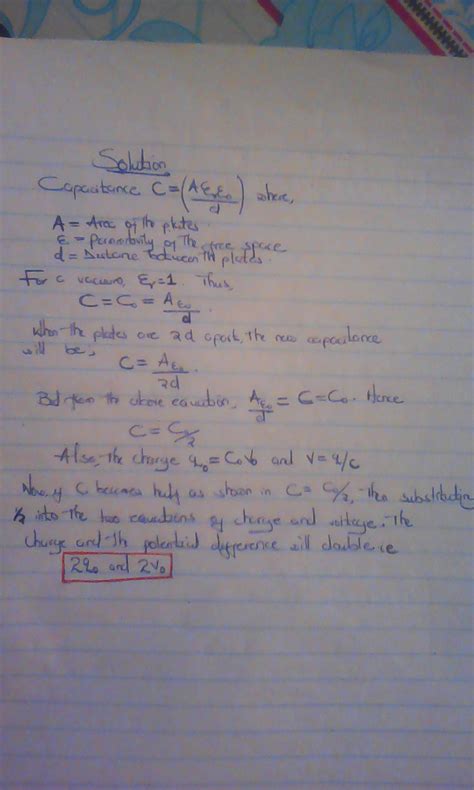 Solution
Capacitance C = (Aε_rε₀/d) where,
A = Area of the plates.
ε = permittivity of the free space
d = Distance between the plates.
For a vacuum, ε_r = 1. Thus,
C = C₀ = Aε₀/d.
When the plates are 2d apart, the new capacitance
will be,
C = Aε₀/2d.
But from the above equation, Aε₀/d = C = C₀. Hence
C = C₀/2
Also, the charge q₀ = C₀V₀ and V = q/c
Now if C becomes half as shown in C = C₀/2, Then substituting
1/2 into the two equations of charge and voltage. The
charge and the potential difference will double i.e
2q₀ and 2V₀